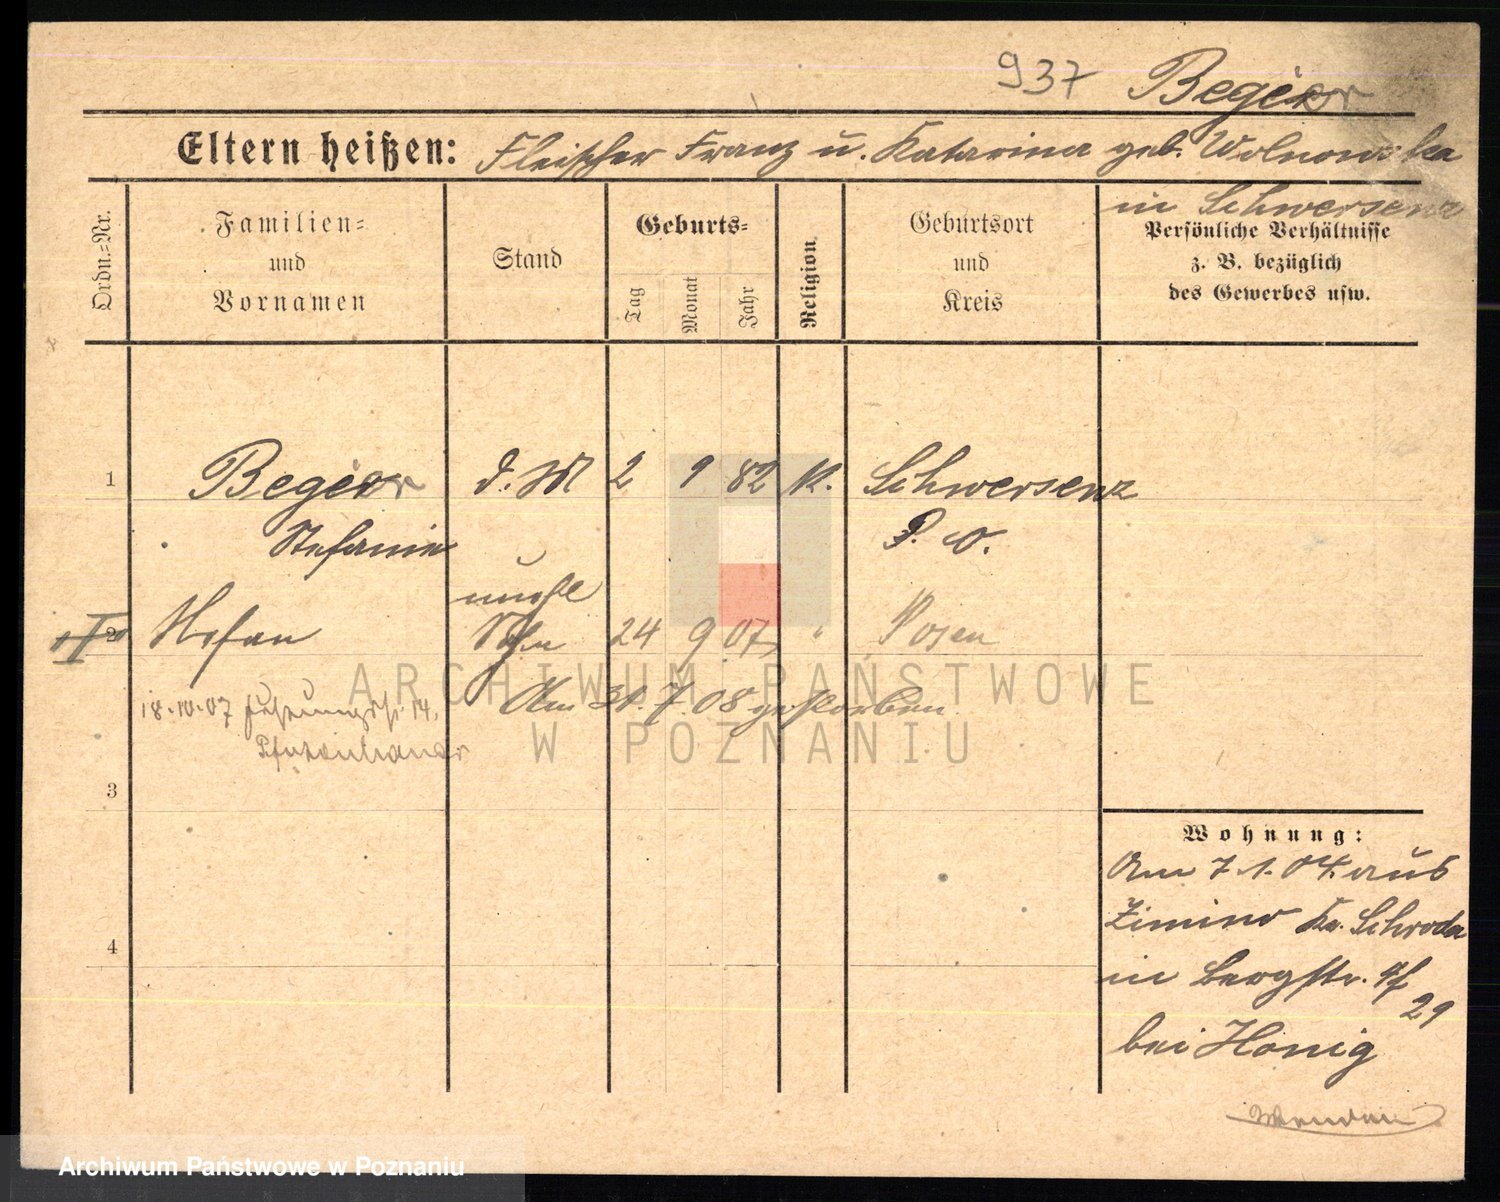 937 Begier
Eltern heißen: Fleischer Franz u. Katarina geb. Wolnowska
in Schwersenz
Ordn.-Nr.
Familien-
und
Vornamen
Stand
Geburts-
Tag
Monat
Jahr
Religion
Geburtsort
und
Kreis
Persönliche Verhältnisse
z. B. bezüglich
des Gewerbes usw.
1 Begier d. M 2 9 82 K. Schwersenz
Stefanie P. O.
unehl
2 Stefan Sohn 24 9 07 " Posen
18.10.07
Am 31.7.08 gestorben.
3
4
Wohnung:
Am 7.1.04. aus
Zimino Kr. Schroda
in Bergstr.
29
bei Honig
Wenden
ARCHIWUM PAŃSTWOWE
W POZNANIU
Archiwum Państwowe w Poznaniu